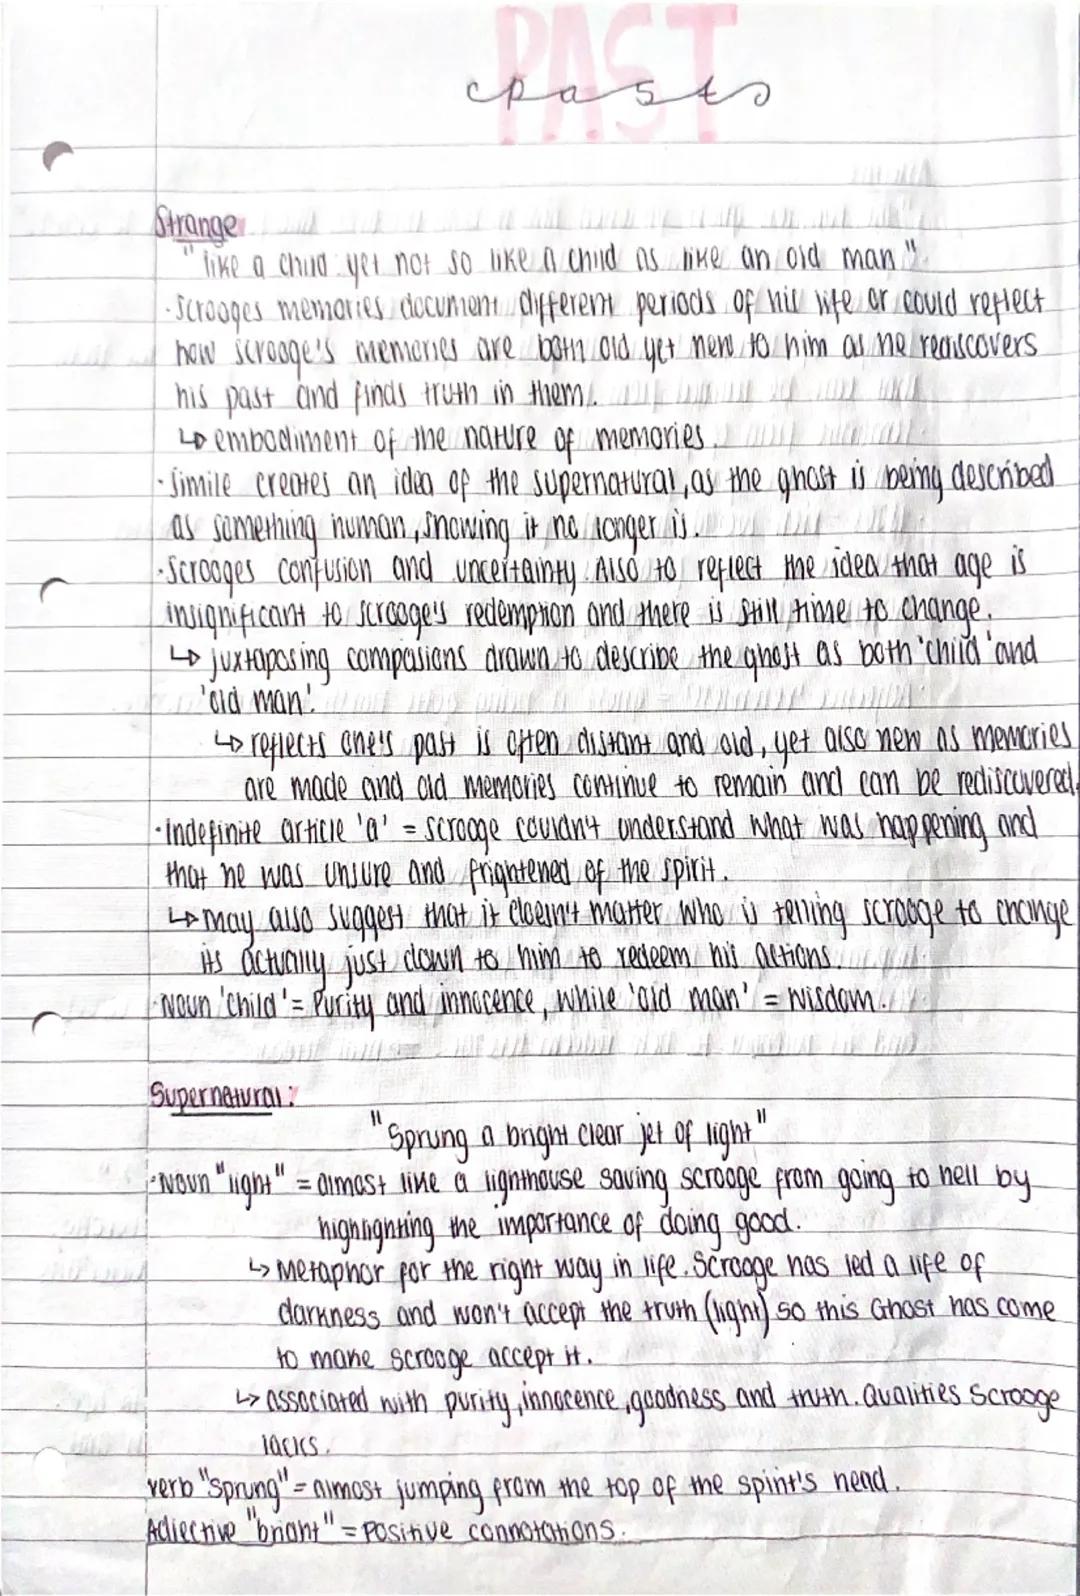 PAST
past
Strange
"like a child: yet not so like a child as like an old man".
·Scrooges memories document different periods of his life or could reflect
how scrooge's memories are both old yet new to him as he rediscovers
his past and finds truth in them.
↳ embodiment of the nature of memories.
·Simile creates an idea of the supernatural, as the ghost is being described
as something human, showing it no longer is.
·Scrooges confusion and uncertainty. Also to reflect the idea that age is
insignificant to scrooge's redemption and there is still time to change.
↳ juxtaposing compasions drawn to describe the ghost as both 'child' and
'old man'.
↳ reflects one's past is often distant and old, yet also new as memories
are made and old memories continue to remain and can be rediscovered.
·Indefinite article 'a' = scrooge couldn't understand what was happening and
that he was unsure and frightened of the spirit.
↳ may also suggest that it doesn't matter who is telling scrooge to change
its actually just down to him to redeem his actions.
·Noun 'child' = Purity and innocence, while 'old man' = wisdom.
Supernatural:
"Sprung a bright clear jet of light"
·Noun "light" = almost like a lighthouse saving scrooge from going to hell by
highlighting the importance of doing good.
↳ Metaphor for the right way in life. Scrooge has led a life of
darkness and won't accept the truth (light) so this Ghost has come
to make scrooge accept it.
↳ associated with purity, innocence, goodness and truth. Qualities Scrooge
lacks.
verb "Sprung" = almost jumping from the top of the spirit's head.
Adjective "bright" = Positive connotations.